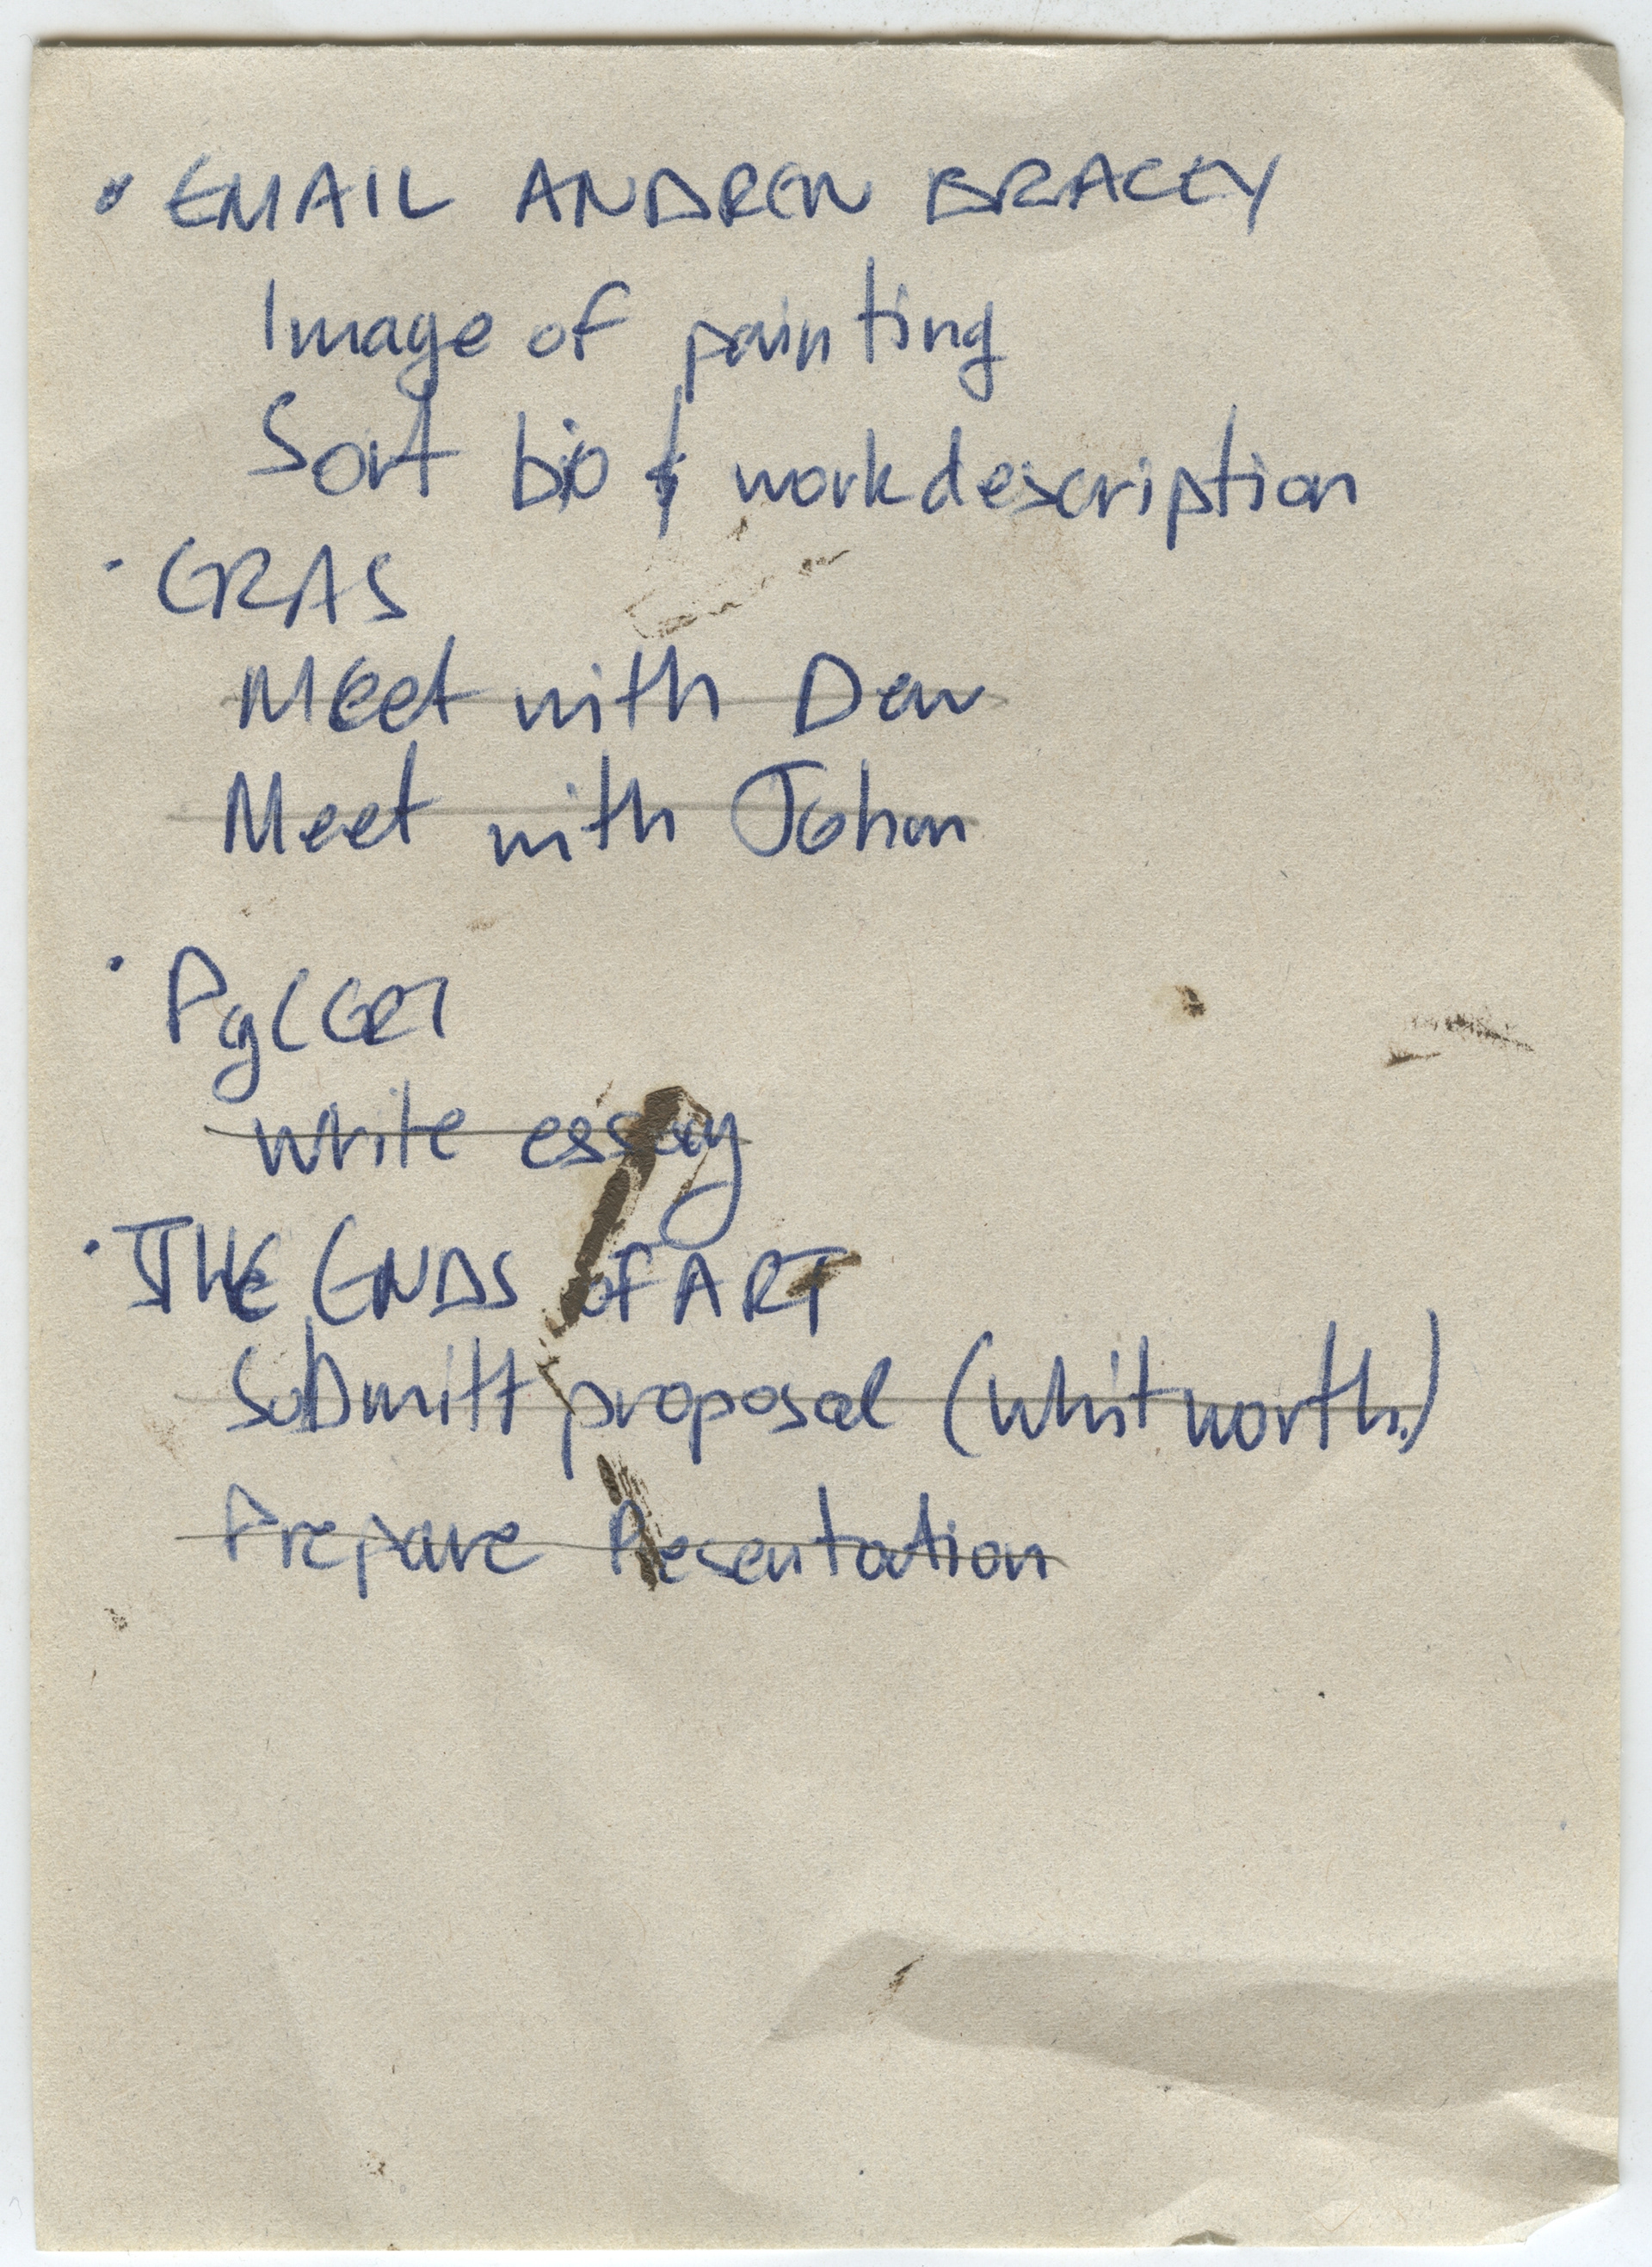 • EMAIL ANDREW BRACEY
Image of painting
Sort bio & work description
• GRAS
Meet with Dew
Meet with Johan
•
write essay
• THE ENDS of ART
Submitt proposal (Whitworth)
Prepare Presentation